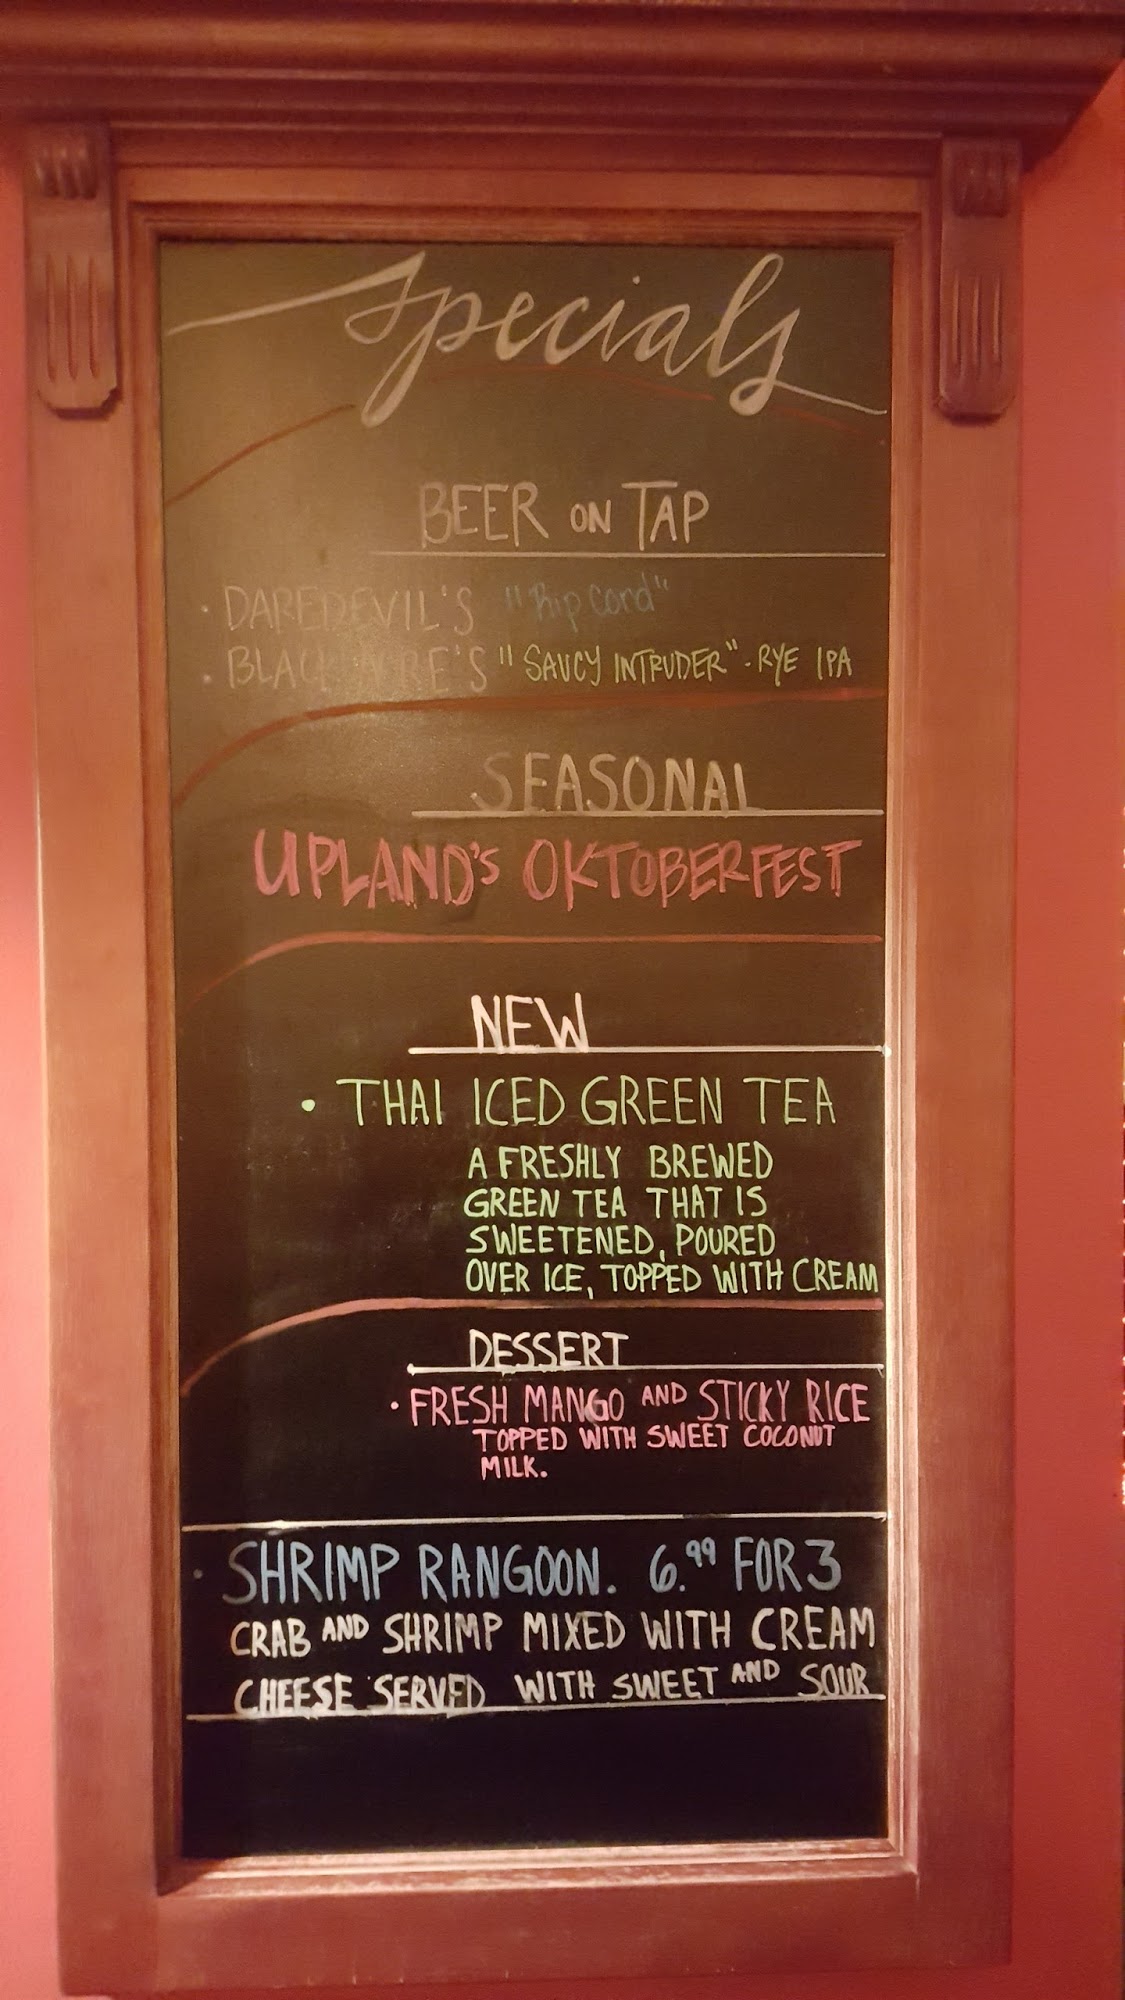 Specials
BEER ON TAP
· DAREDEVIL'S "Rip Cord"
· BLACK ACRE'S "SAUCY INTRUDER" - RYE IPA
SEASONAL
UPLAND'S OKTOBERFEST
NEW
· THAI ICED GREEN TEA
A FRESHLY BREWED
GREEN TEA THAT IS
SWEETENED, POURED
OVER ICE, TOPPED WITH CREAM
DESSERT
· FRESH MANGO AND STICKY RICE
TOPPED WITH SWEET COCONUT
MILK.
· SHRIMP RANGOON. 6.99 FOR 3
CRAB AND SHRIMP MIXED WITH CREAM
CHEESE SERVED WITH SWEET AND SOUR